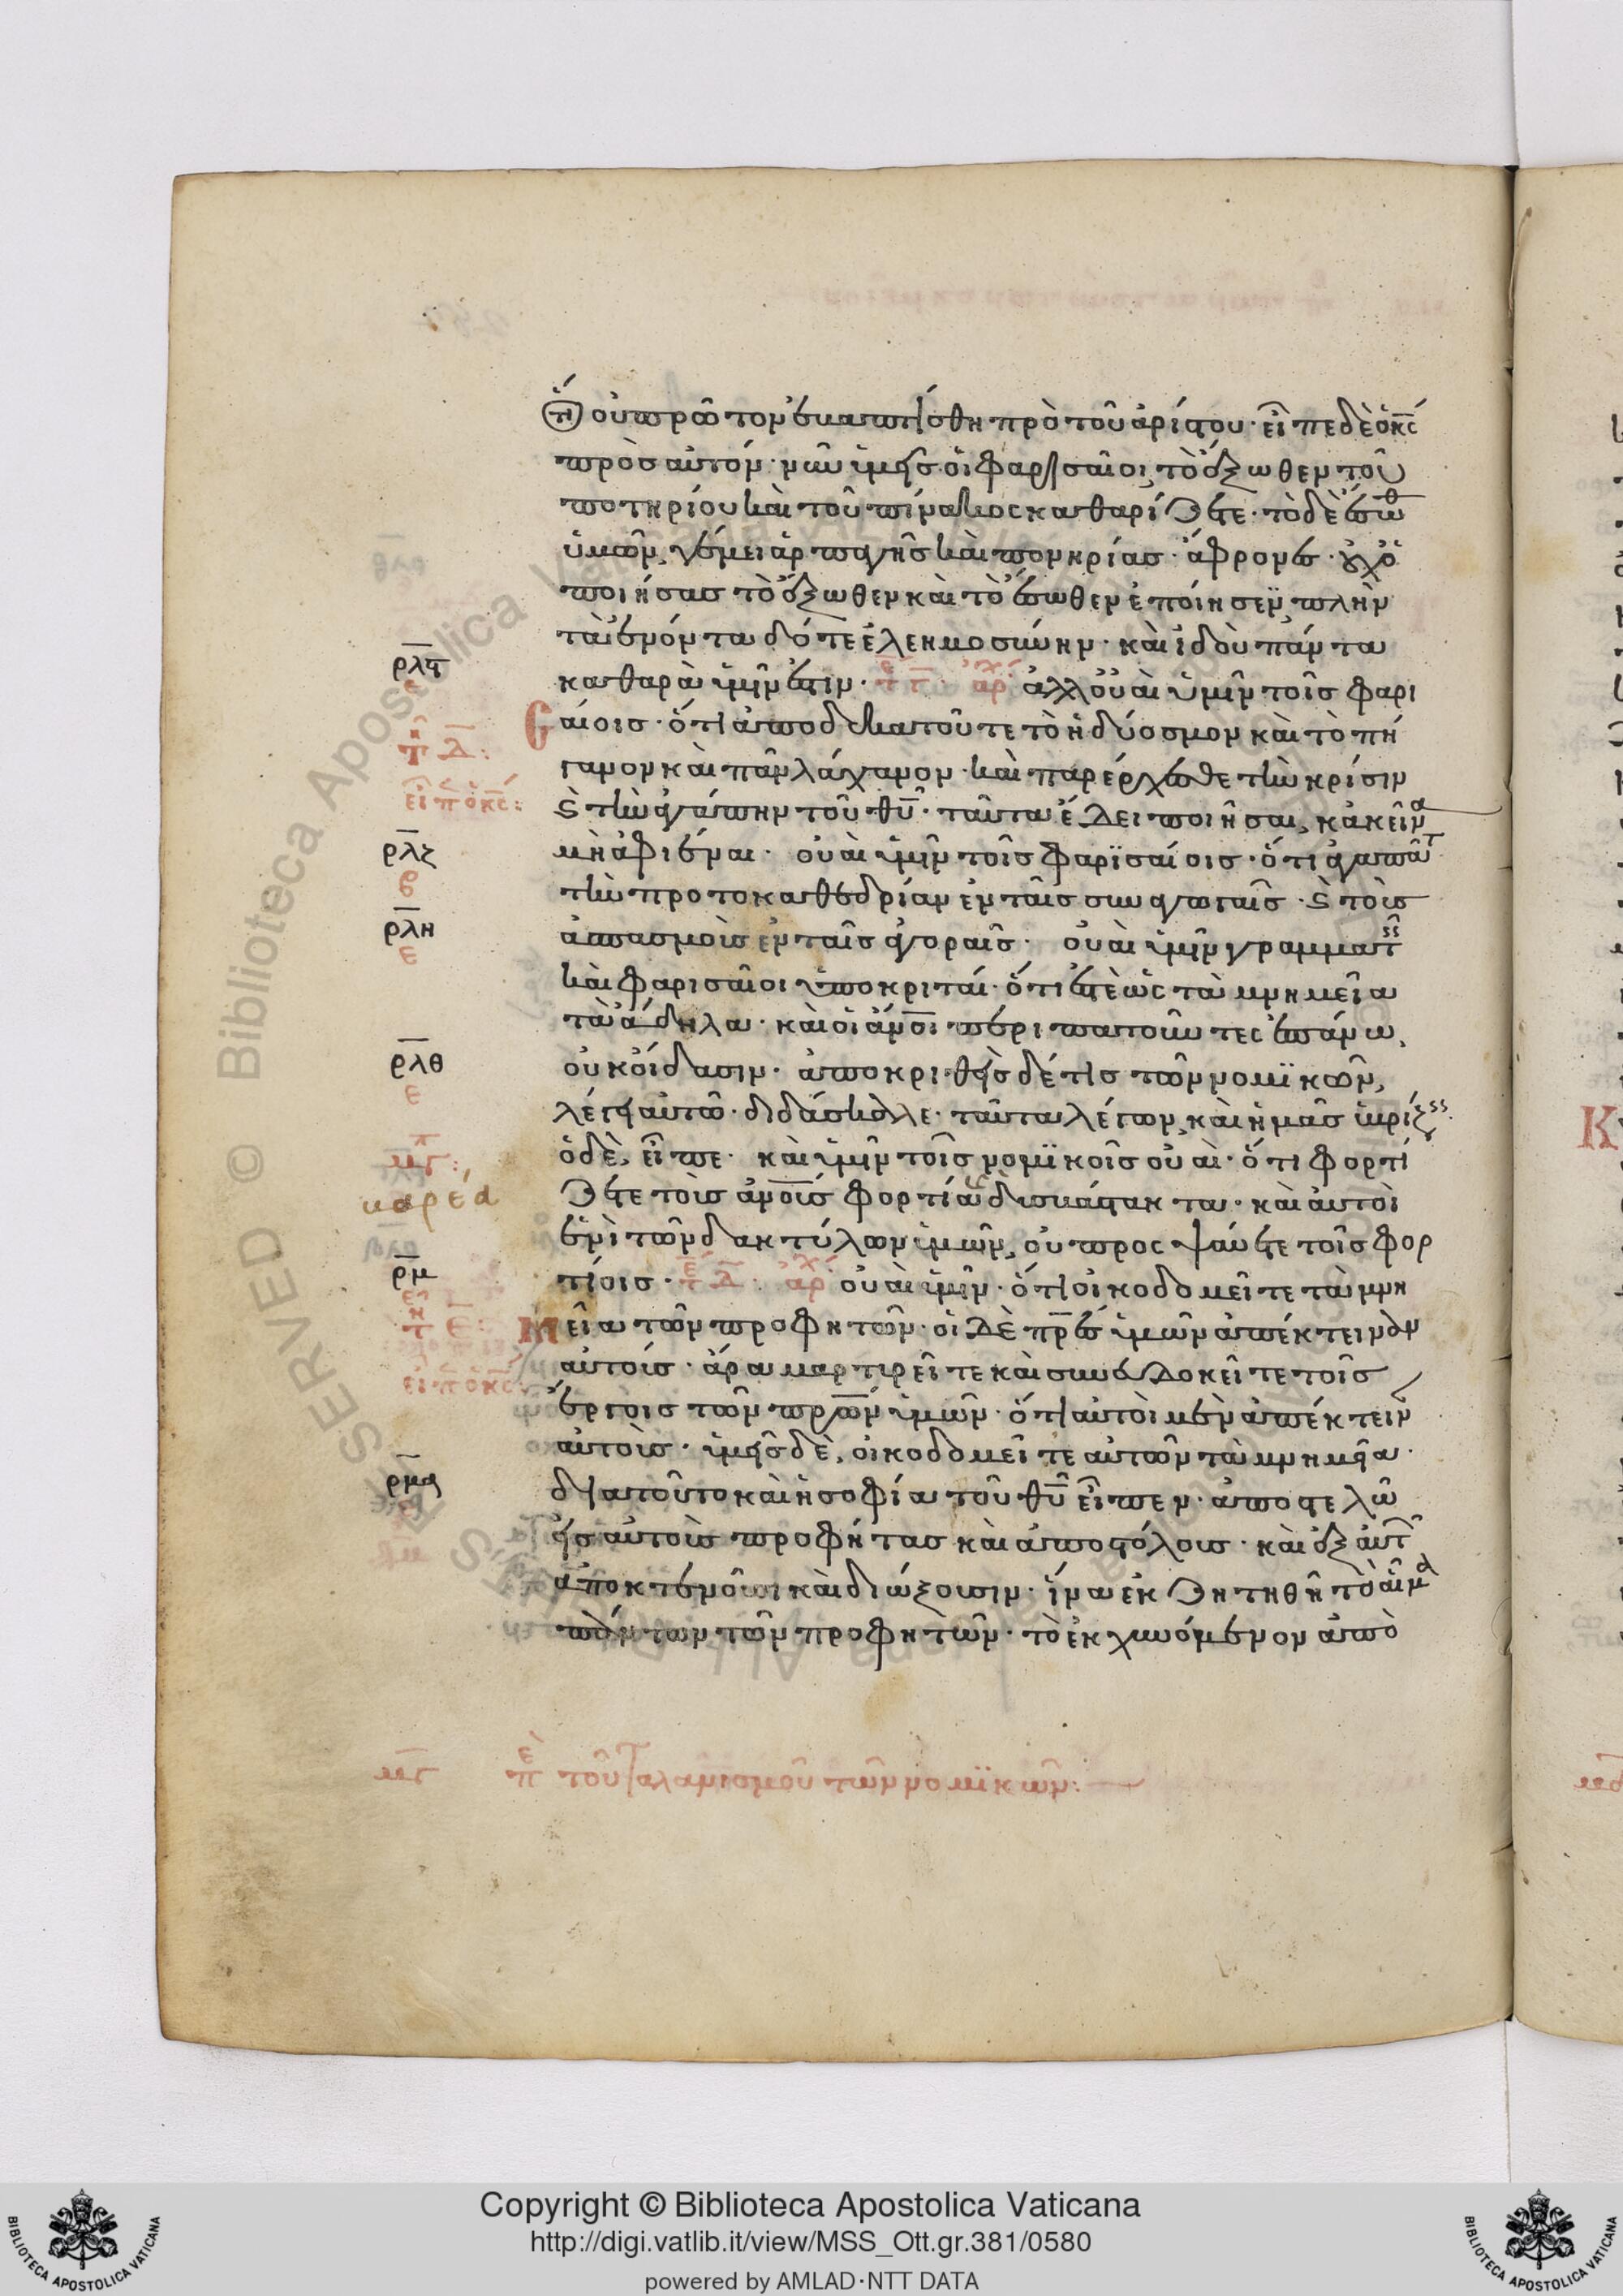 ὅτι οὐ πρῶτον ἐβαπτίσθη πρὸ τοῦ ἀρίστου· εἶπε δὲ ὁ κς
πρὸς αὐτόν· νῦν ὑμεῖς οἱ φαρισαῖοι, τὸ ἔξωθεν τοῦ
ποτηρίου καὶ τοῦ πίνακος καθαρίζετε· τὸ δὲ ἔσωθ
ὑμῶν, γέμει ἁρπαγῆς καὶ πονηρίας· ἄφρονες· οὐχ ὁ
ποιήσας τὸ ἔξωθεν καὶ τὸ ἔσωθεν ἐποίησεν· πλὴν
τὰ ἐνόντα δότε ἐλεημοσύνην· καὶ ἰδοὺ πάντα
ρλϛ
καθαρὰ ὑμῖν ἐστιν· ἀρχ ἀλλ οὐαὶ ὑμῖν τοῖς φαρι
σαίοις· ὅτι ἀποδεκατοῦτε τὸ ἡδύοσμον καὶ τὸ πή
τῇ δ:
γανον καὶ πᾶν λάχανον· καὶ παρέρχεσθε τὴν κρίσιν
εἶπ ὁ κς:
ϗ τὴν ἀγάπην τοῦ θυ· ταῦτα ἔδει ποιῆσαι, κἀκεῖνα
ρλζ
μὴ ἀφιέναι· οὐαὶ ὑμῖν τοῖς φαρϊσαίοις· ὅτι ἀγαπᾶτ
τὴν προτοκαθεδρίαν ἐν ταῖς συναγωγαῖς· ϗ τοὺς
ρλη
ε
ἀσπασμοὺς ἐν ταῖς ἀγοραῖς· οὐαὶ ὑμῖν γραμματ
καὶ φαρισαῖοι ὑποκριταί· ὅτι ἐστὲ ὡς τὰ μνημεῖα
τὰ ἄδηλα· καὶ οἱ ἀνοι περιπατοῦντες ἐπάνω,
ρλθ
ε
οὐκ οἴδασιν· ἀποκριθεὶς δέ τις τῶν νομϊκῶν,
λέγει αὐτῶ· διδάσκαλε· ταῦτα λέγων, καὶ ἡμᾶς ὑβρίζ
μγ:
ὁ δὲ, εἶπε· καὶ ὑμῖν τοῖς νομϊκοῖς οὐαὶ· ὅτι φορτί
ζετε τοὺς ἀνους φορτία δυσβάστακτα· καὶ αὐτοὶ
ἑνὶ τῶν δακτύλων ὑμῶν, οὐ προσψαύετε τοῖς φορ
ρμ
τίοις· ἀρχ οὐαὶ ὑμῖν· ὅτι οἰκοδομεῖτε τὰ μνη
τῇ ε:
μεῖα τῶν προφητῶν· οἱ δὲ πρες ὑμῶν ἀπέκτειναν
εἶπ ὁ κς:
αὐτούς· ἄρα μαρτυρεῖτε καὶ συνευδοκεῖτε τοῖς
ἔργοις τῶν πρων ὑμῶν· ὅτι αὐτοὶ μὲν ἀπέκτειν
αὐτοὺς· ὑμεῖς δὲ, οἰκοδομεῖτε αὐτῶν τὰ μνημεῖα·
ρμα
διατοῦτο καὶ ἡ σοφία τοῦ θυ εἶπεν· ἀποστελῶ
εἰς αὐτοὺς προφήτας καὶ ἀποστόλους· καὶ ἐξ αὐτ
ἀποκτενοῦσι καὶ διώξουσιν· ἵνα ἐκζητηθῆ τὸ αἷμα
πάντων τῶν προφητῶν· τὸ ἐκχυνόμενον ἀπὸ
μγ πε τοῦ ταλανισμοῦ τῶν νομϊκῶν:
Copyright © Biblioteca Apostolica Vaticana
http://digi.vatlib.it/view/MSS_Ott.gr.381/0580
powered by AMLAD·NTT DATA
BIBLIOTECA APOSTOLICA VATICANA
BIBLIOTECA APOSTOLICA VATICANA